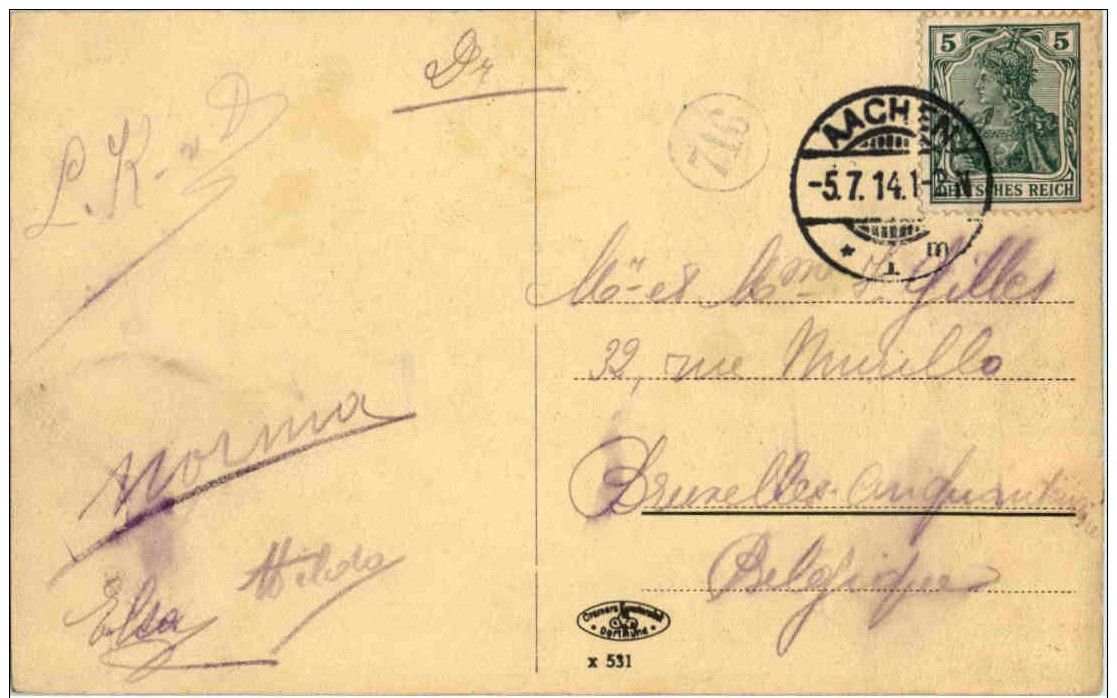 Dr
L. K. v D
Norma
Hilda
Elsa
716
5 5
DEUTSCHES REICH
AACHEN
-5.7.14.1-2 N
* 1 m
Mr et Mme J. Gilles
32, rue Murillo
Bruxelles-Cinquantenaire
Belgique
Cramers Kunstanstalt
Dortmund
x 531